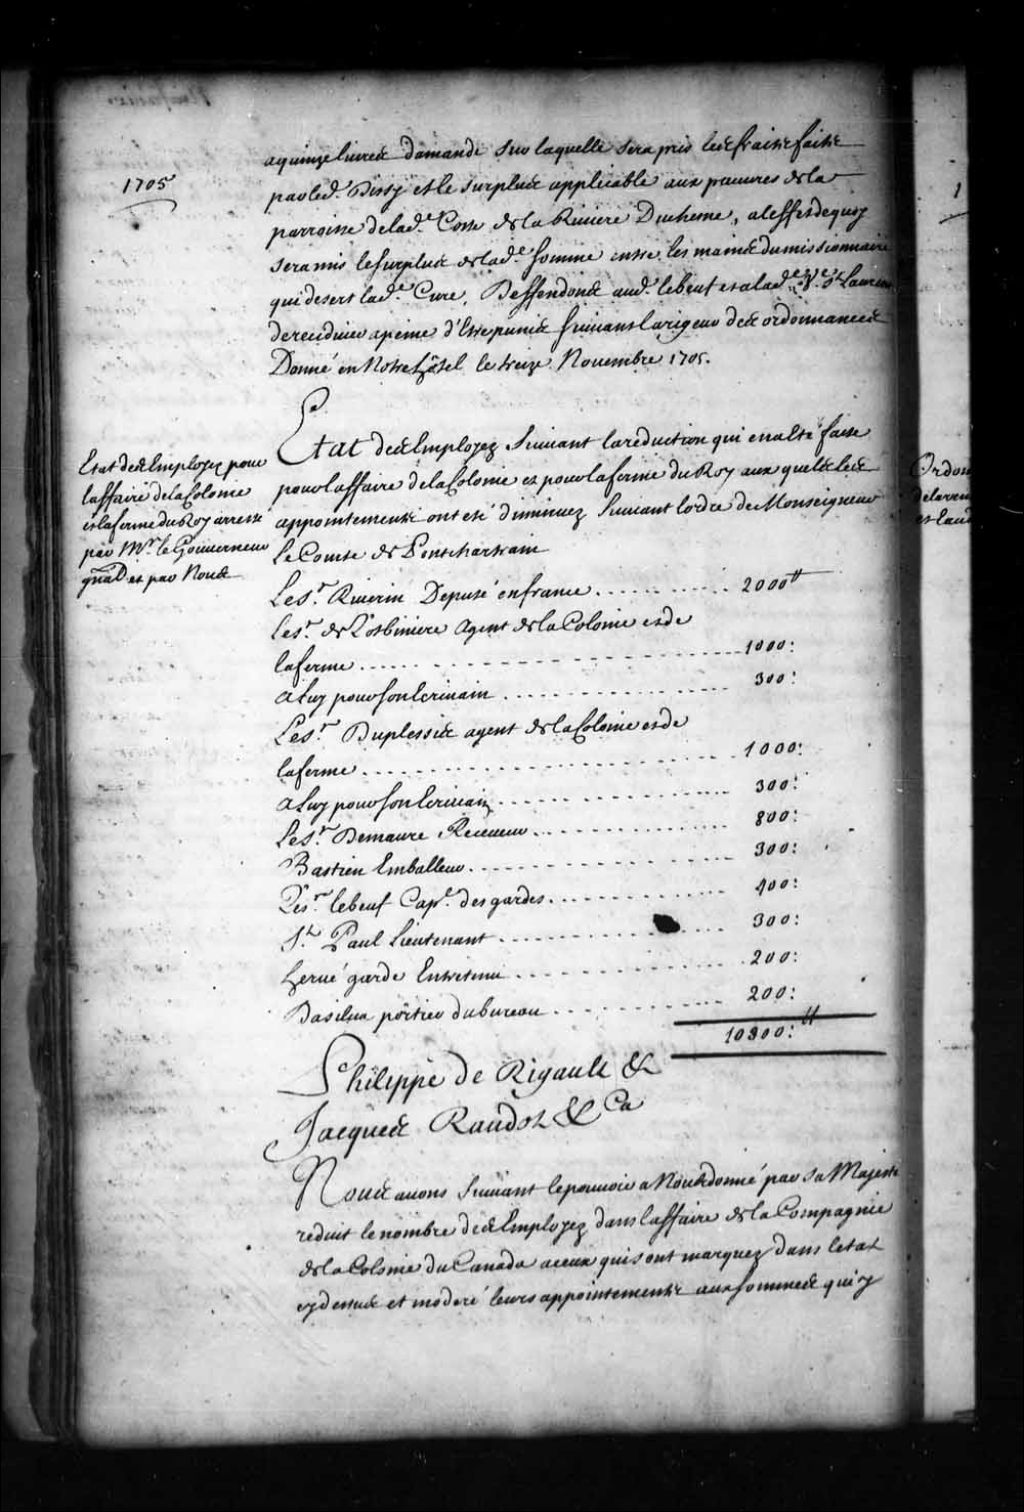 1705
a quinze livres damande sur laquelle sera pris les fraits faits
par led. Dissy et le surplus applicable aux pauvres de la
parroisse de lad.e Coste de la Riviere Duchesne, a leffet de quoy
sera mis le surplus de lad.e somme entre les mains du missionnaire
qui desert lad.e Cure, Deffendons aud. lebeuf et a lad.e V.e St Laurens
de recidiver a peine d'Estre punis suivant la rigeur des ordonnances
Donné en Notre hôtel le treize Novembre 1705.
Etat des Employez pour
laffaire de la Colonie
et la ferme du Roy arresté
par Mr. le Gouverneur
gnâl et par Nous
Etat des Employez suivant la reduction qui en a Eté faite
pour laffaire de la Colonie et pour la ferme du Roy aux quels les
appointements ont eté diminuez suivant lordre de Monseigneur
Le Comte de Pontchartrain
Le Sr. Riverin Deputé en france ........... 2000tt
Le Sr. de Lotbiniere agent de la Colonie et de
la ferme ........... 1000:
a Luy pour son Ecrivain ........... 300:
Le Sr. Duplessis agent de la Colonie et de
la ferme ........... 1000:
a Luy pour son Ecrivain ........... 300:
Le Sr. Demaure Receveur ........... 800:
Bastien Emballeur ........... 300:
Le Sr. lebeuf Cap.e des gardes ........... 400:
St. Paul Lieutenant ........... 300:
hervé garde Entretenu ........... 200:
portier du bureau ........... 200:
10800:tt
Philippe de Rigault &
Jacques Raudot & Ca
Nous avons suivant le pouvoir a Nous donné par sa Majesté
reduit le nombre des Employez dans laffaire de la Compagnie
de la Colonie du Canada a ceux qui sont marquez dans letat
cy dessus et moderé leurs appointements aux sommes qui y
1
Ordon